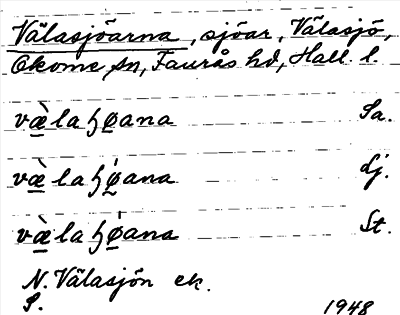 Välasjöarna, sjöar, Välasjö,
Okome sn, Faurås hd, Hall. l.
væ̀laɧøana Sa.
væ̀laɧø̀ana Lj.
væ̀laɧø̀ana St.
N. Välasjön ek.
S. 1948